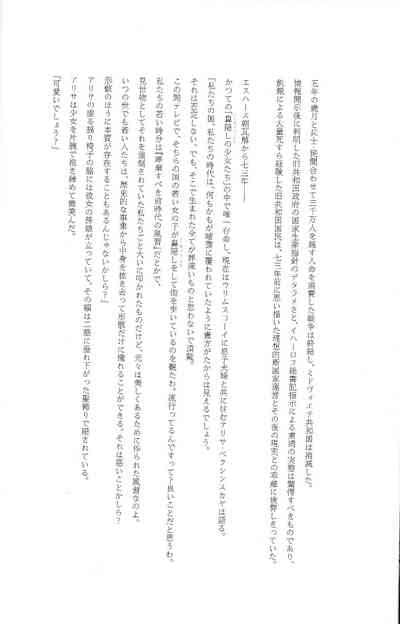 五年の歳月と兵士・民間合わせて三千万人を越す人命を消費した戦争は終結し、ミドヴィエナ共和国は消滅した。
情報開示後に判明した旧共和国政府の国家生産指針のデタラメさと、イハーロフ総書記指示による粛清の実態は驚愕すべきものであり、
飢餓による大量死すら経験した旧共和国国民は、七三年前に思い描いた理想的新国家運営とその後の現実との乖離に疲弊しきっていた。
エスハース朝瓦解から七三年――
かつての『鼻隠しの少女たち』の中で唯一存命し、現在はウリムスコーイに息子夫婦と共に住むアリサ・ベクシンスカヤは語る。
『私たちの国、私たちの時代は、何もかもが暗澹に覆われていたように貴方がたからは見えるでしょう。
それは否定しない。でも、そこで生まれた全てが葬添いものと思わないで頂戴。
この間テレビで、そちらの国の若い女の子が鼻隠しをして街を歩いているのを観たわ。流行ってるんですって？良いことだと思うわ。
私たちの若い時分は『廃棄すべき前時代の風習』だとかで、
見世物としてそれを強制されていた私たちごと大いに叩かれたものだけど、元々は美しくあるために作られた風習なのよ。
いつの世でも若い人たちは、歴史的な事象から中身を抜き去って形骸だけに憧れることができる。それは悪いことかしら？
形骸のほうに本質が存在することもあるんじゃないかしら？』
アリサの座る揺り椅子の脇には彼女の孫娘が立っていて、その顔は二筋に垂れ下がった鼻飾りで隠されている。
アリサは少女を片腕で抱き締めて微笑んだ。
『可愛いでしょう？』